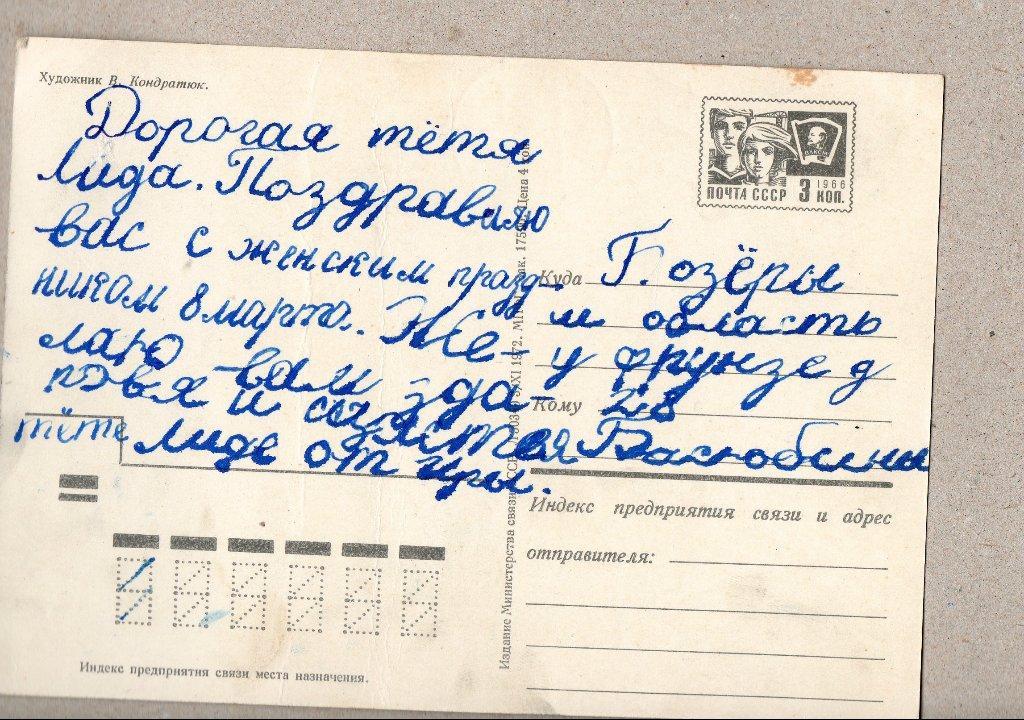 Художник В. Кондратюк.
Дорогая тётя
Лида. Поздравляю
вас с женским празд-
ником 8 марта. Же-
лаю вам здо-
ровья и счастья
тёте Лиде от Иры.
ВЛКСМ
1966
ПОЧТА СССР 3 КОП.
Куда Г. озёры
м область
у фрунзе д
Кому 28
Индекс предприятия связи и адрес
отправителя:
Издание Министерства связи СССР XI 1972. Цена 4 коп.
Индекс предприятия связи места назначения.